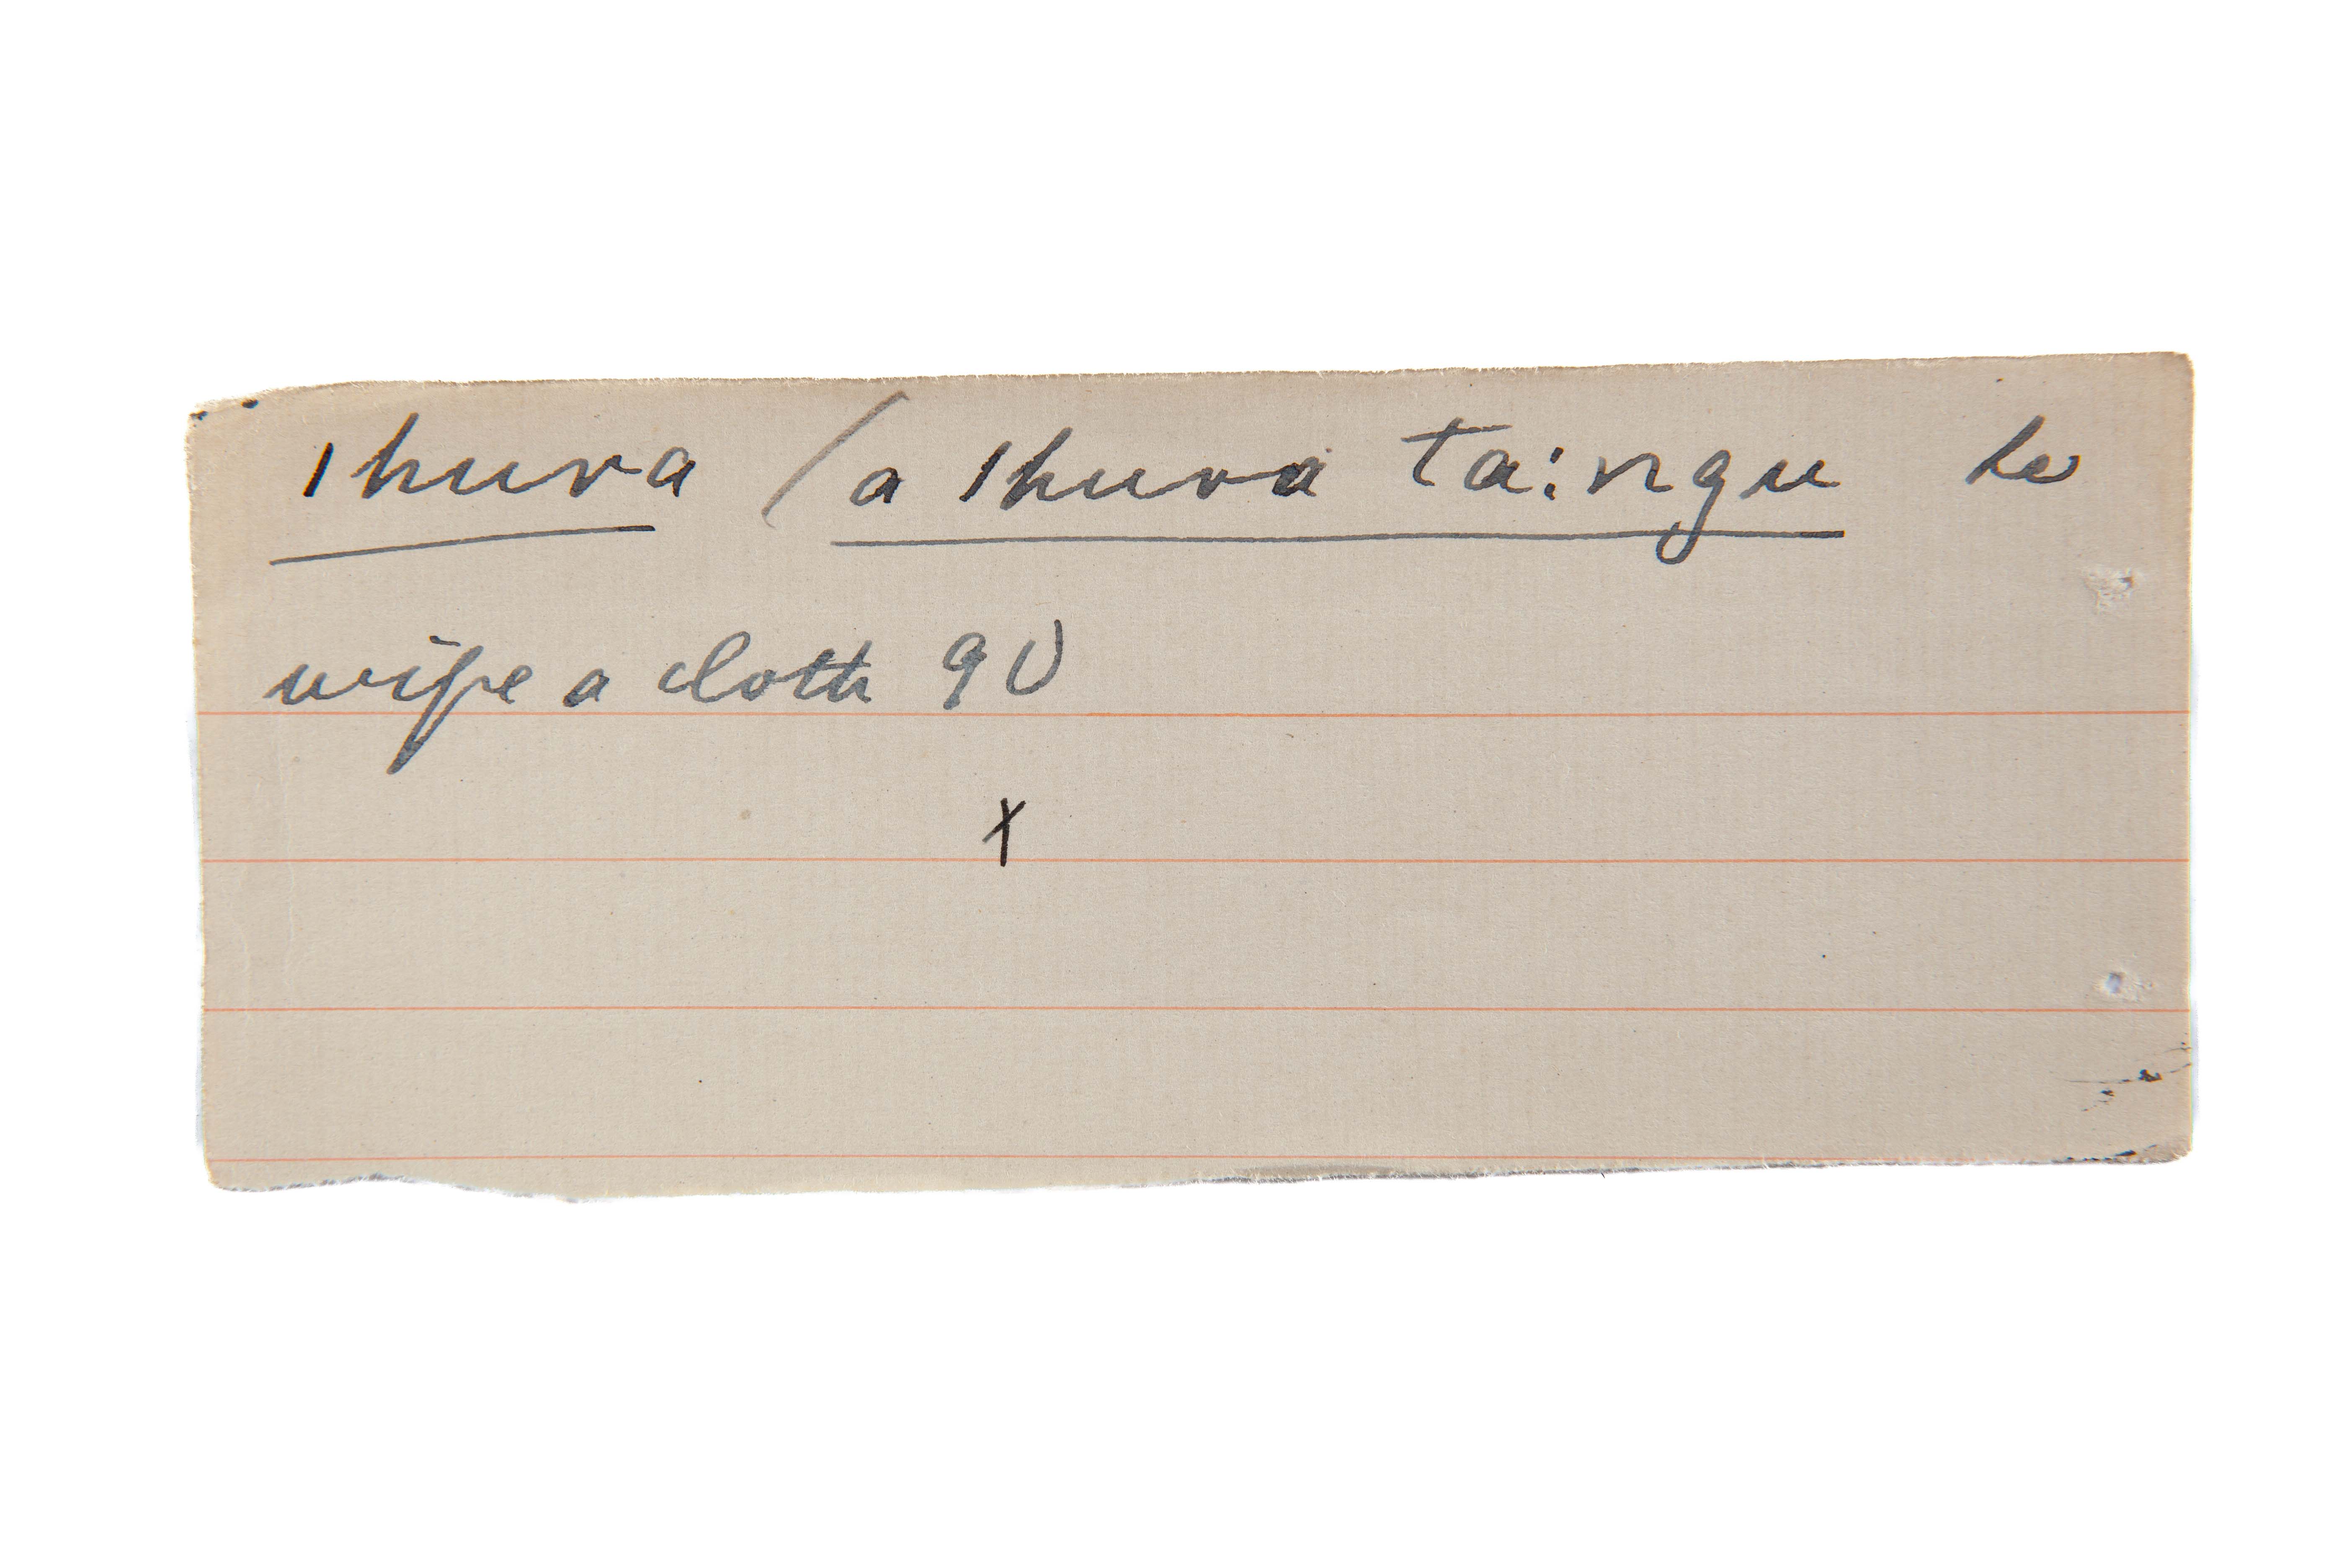 ıhuva (a ıhuva ta:ngu to
wipe a cloth 90)
x